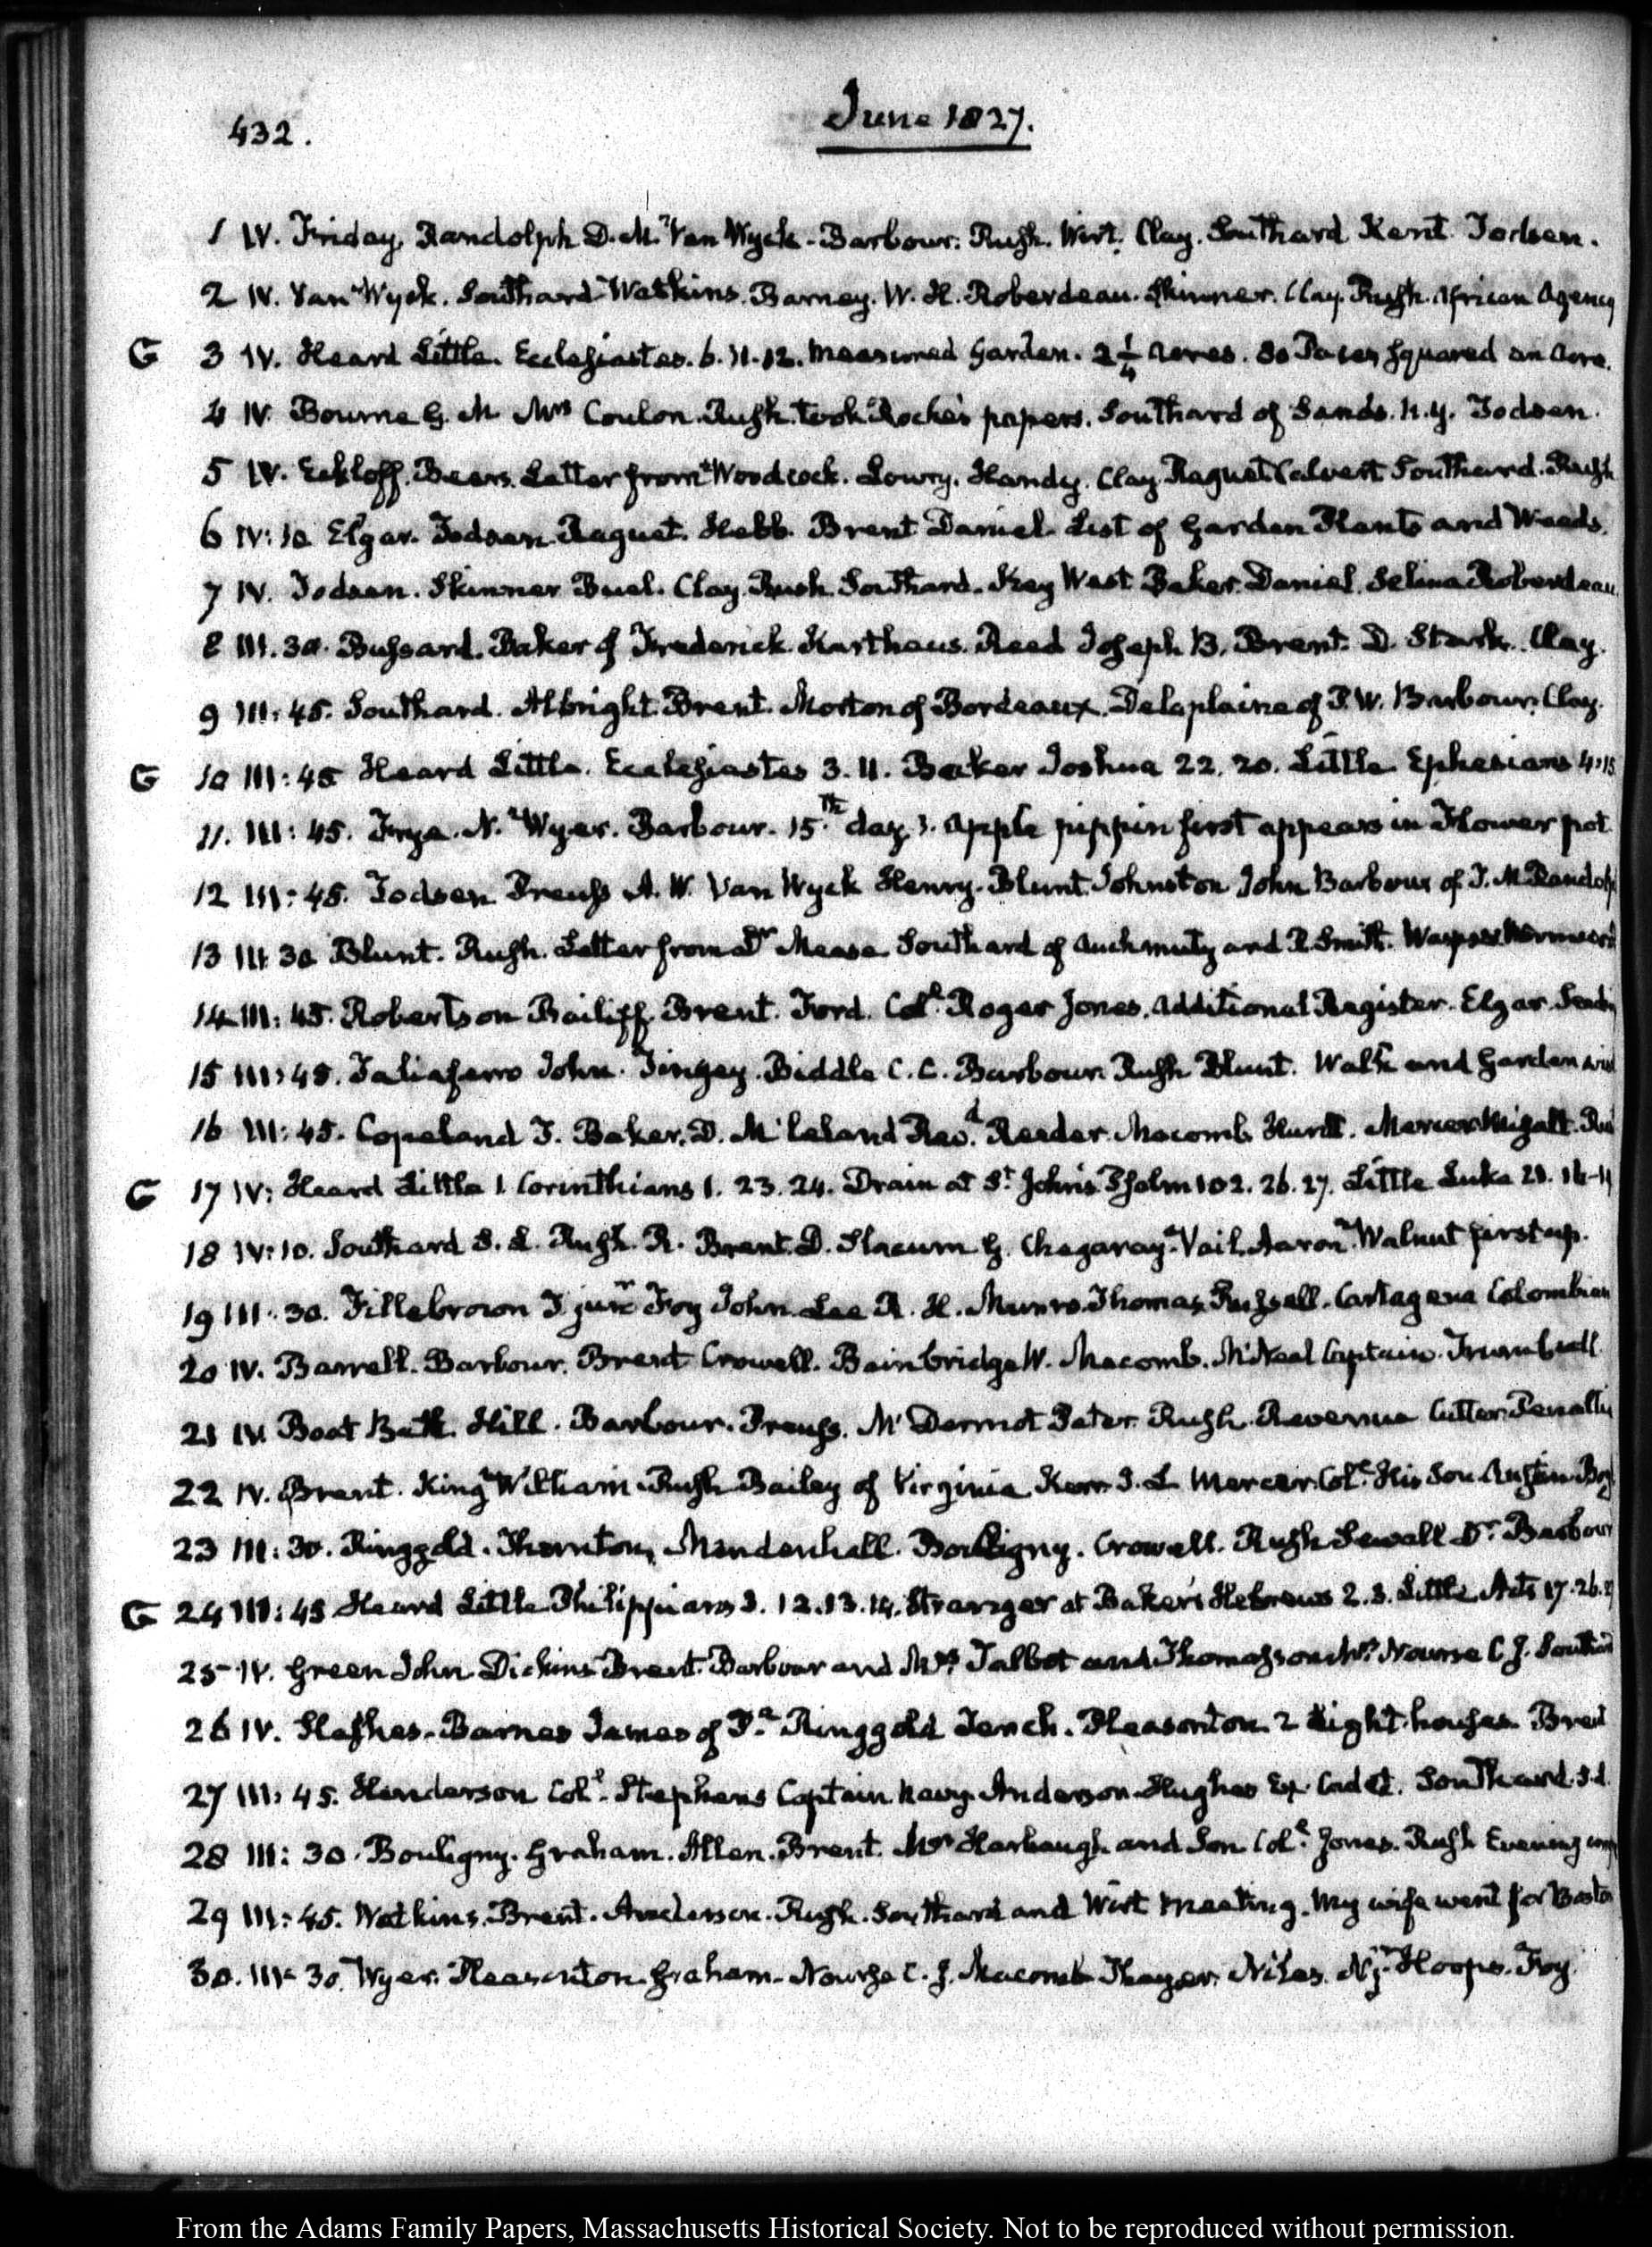 432.
June 1827.
1 IV. Friday. Randolph D. M. Van Wyck - Barbour. Rush. Wirt. Clay. Southard Kent. Todsen.
2 IV. Van Wyck. Southard Watkins. Barney. W. H. Roberdeau. Skinner. Clay. Rush. African Agency
G 3 IV. Heard Little. Ecclesiastes. 6. 11. 12. Measured Garden. 2 1/4 Acres. 80 Paces squared an Acre.
4 IV. Bourne G. M Mrs Coulon. Rush. took Roche's papers. Southard of Sands. N.Y. Todsen.
5 IV. Eckloff. Beers. Letter from Woodcock. Lowry. Handy. Clay. Raguet Calvert Southard. Rush
6 IV: 10 Elgar. Todsen Raguet. Hebb. Brent Daniel. List of Garden Plants and Weeds.
7 IV. Todsen. Skinner Buel. Clay. Rush. Southard. Key West Baker. Daniel. Selina Roberdeau
8 III. 30. Bussard. Baker of Frederick. Karthaus. Reed Joseph B. Brent. D. Stark. Clay.
9 III: 45. Southard. Albright. Brent. Morton of Bordeaux. Delaplaine of P. W. Barbour. Clay.
G 10 III: 45 Heard Little. Ecclesiastes 3. 11. Baker Joshua 22. 20. Little Ephesians 4:15
11. III: 45. Frye. N. Wyer. Barbour. 15.th day. Apple pippin first appears in Flower pot.
12 III: 45. Todsen Preuss A. W. Van Wyck Henry. Blunt. Johnston John Barbour of T. M Randolph
13 III 30 Blunt. Rush. Letter from Dr Mease Southard of Auchmuty and R Smith.
14 III: 45. Robertson Bailiff. Brent. Ford. Col.l Roger Jones. Additional Register. Elgar.
15 III: 45. Taliaferro John. Tingey. Biddle C. C. Barbour. Rush Blunt. Walk and Garden
16 III: 45. Copeland J. Baker. D. M'Leland Rev.d Reeder. Macomb. Hunt. Mercer
G 17 IV: Heard Little 1. Corinthians 1. 23. 24. Drain at St. John's Psalm 102. 26. 27. Little Luke 21.
18 IV: 10. Southard S. L. Rush. R. Brent. D. Slacum G. Chegaray. Vail. Aaron. Walnut first up.
19 III: 30. Fillebrown T. junr Foy John. Lee R. H. Munro. Thomas Russell. Cartagena Colombian
20 IV. Barrell. Barbour. Brent Crowell. Bainbridge W. Macomb. M'Neal Captain. Trumbull
21 IV. Boat Bath. Hill. Barbour. Preuss. Mc Dermot Peter. Rush. Revenue Cutter. Penalty
22 IV. Brent. King William. Rush. Bailey of Virginia Kerr J. L. Mercer Col.l His Son
23 III: 30. Ringgold. Thornton, Mendenhall. Bouligny. Crowell. Rush Sewall Dr. Barbour
G 24 III: 45 Heard Little Philippians 3. 12. 13. 14. Stranger at Baker's Hebrews 2. 3. Little Acts 17. 26.
25 IV. Green John Dickins Brent Barbour and Mrs Talbot and Thomasson Nourse C. J.
26 IV. Barnes James of Pa. Ringgold Tench. Pleasonton. 2 Light houses. Brent
27 III: 45. Henderson Col.l Stephens Captain Navy. Anderson. Hughes Ex-Cadet. Southard. S. L.
28 III: 30. Bouligny. Graham. Allen. Brent. Mrs Harbaugh and Son Col.l Jones. Rush. Evening
29 III: 45. Watkins. Brent. Anderson. Rush. Southard and Wirt meeting. My wife went for Boston
30. III 30. Wyer. Pleasonton. Graham. Nourse C. J. Macomb Thayer. Niles. Hoops. Foy.
From the Adams Family Papers, Massachusetts Historical Society. Not to be reproduced without permission.